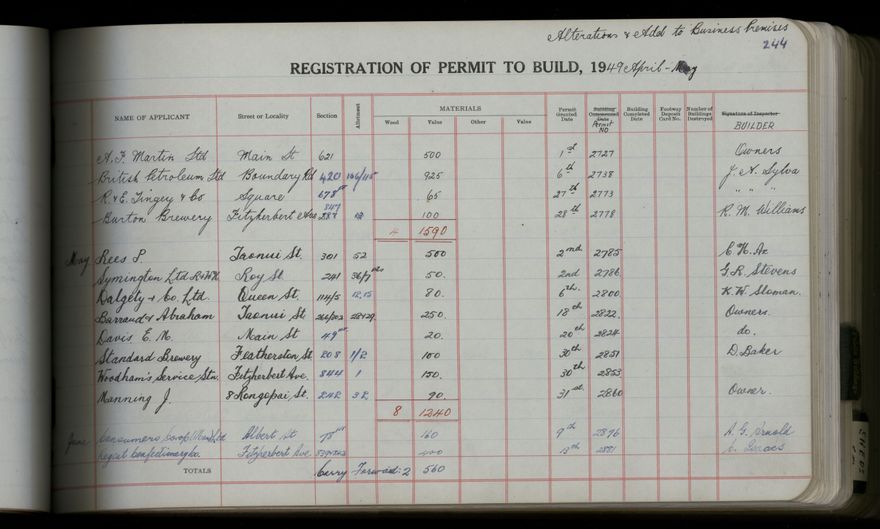 Alterations & Add to Business Premises
244
REGISTRATION OF PERMIT TO BUILD, 1949 April - May
NAME OF APPLICANT Street or Locality Section Allotment MATERIALS Wood Value Other Value Permit Granted Date Building Commenced Date Permit NO Building Completed Date Footway Deposit Card No. Number of Buildings Destroyed Signature of Inspector BUILDER
A. F. Martin Ltd Main St 621 500 1st 2727 Owners
British Petroleum Ltd Boundary Rd 4201 925 6th 2738 J. A. Sylva
R. & E. Tingey & Co Square 678 65 27th 2773 " " "
Burton Brewery Fitzherbert Ave 100 28th 2778 R. M. Williams
4 1590
May Rees P. Taonui St. 301 52 500 2nd 2785
Symington Ltd Roy St. 241 36/7 50. 2nd 2786 G. R. Stevens
Dalgety & Co. Ltd. Queen St. 114/5 12,15 80. 6th. 2800 K. W. Sloman.
Barraud & Abraham Taonui St 250. 18th 2822. Owners.
Davis E. M. Main St 49 20. 20th 2824 do.
Standard Brewery Featherston St 208 1/2 100 30th 2851 D. Baker
Woodham's Service Stn. Fitzherbert Ave. 844 1 150. 30th 2853
Manning J. 8 Rongopai St. 248 38 90. 31st 2860 Owner.
8 1240
June Consumers Albert St 160 9th 2876 A. G. Arnold
Regent Confectionery Co. Fitzherbert Ave. 400 13th 2881
TOTALS Carry Forward: 2 560